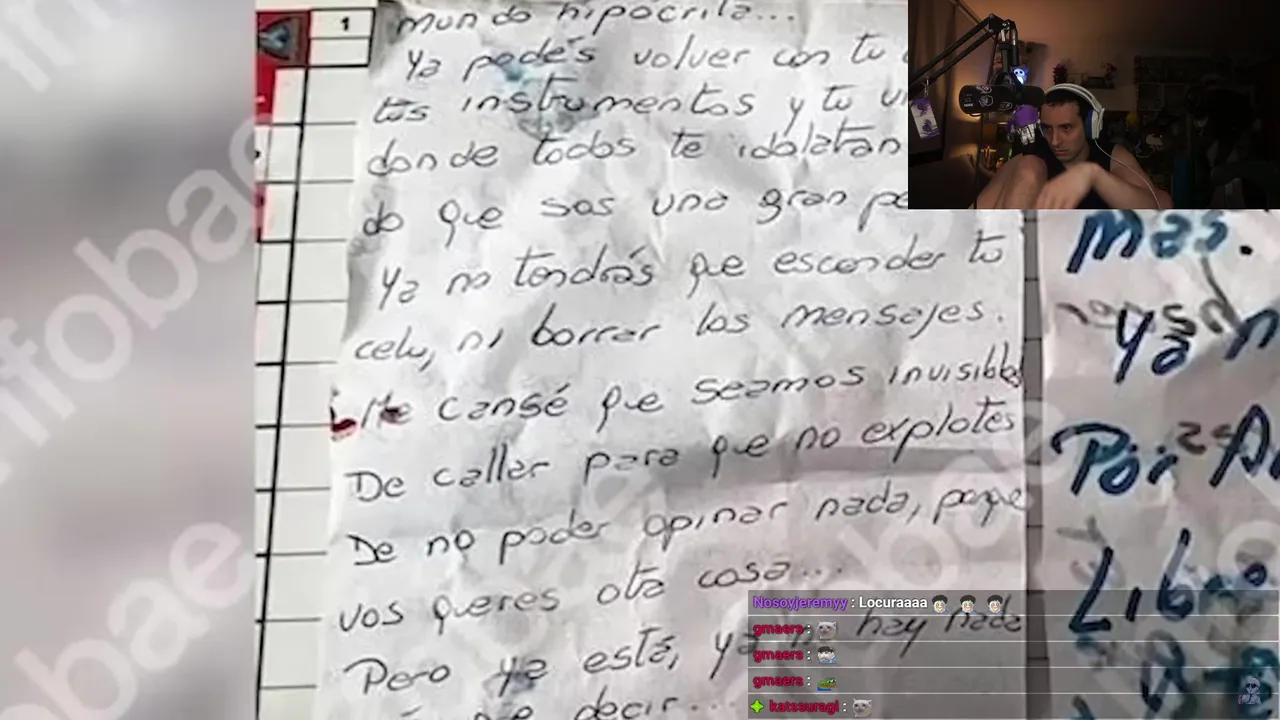 1
mundo hipócrita...
Ya podés volver con tu
tus instrumentos y tu
donde todos te idolatran
do que sos una gran
Ya no tendrás que esconder tu
celu, ni borrar los mensajes.
Me cansé que seamos invisibles
De callar para que no explotes
De no poder opinar nada, porque
vos queres otra cosa...
Pero ya está, ya no hay nada
que decir...
mas.
Ya n
Por
Nosoyjeremyy: Locuraaaa
gmaers:
gmaers:
gmaers:
katssuragi:
infobae